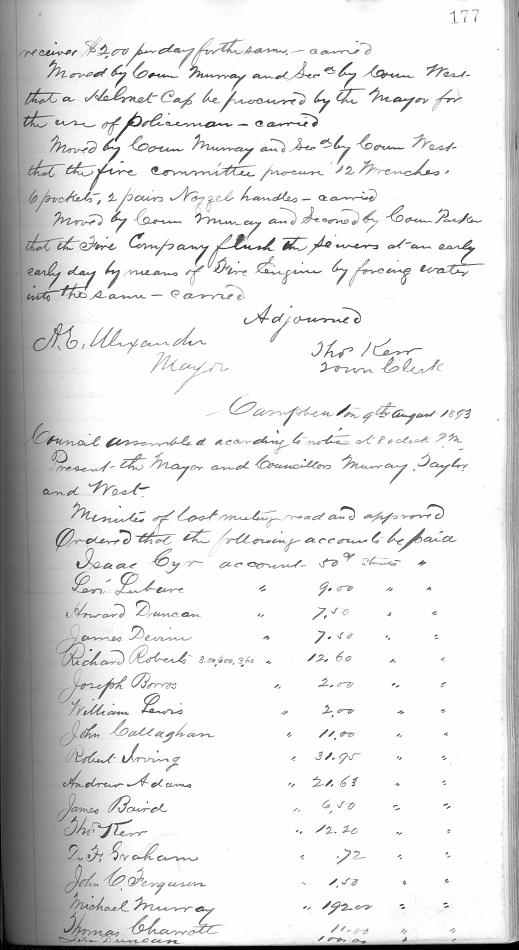 177
receive $2.00 per day for the same. - carried
Moved by Coun Murray and Secd by Coun West
that a Helmet Cap be procured by the Mayor for
the use of Policeman - carried
Moved by Coun Murray and Secd by Coun West
that the fire committee procure 12 Wrenches.
6 pockets, 2 pairs Nozzel handles - carried
Moved by Coun Murray and Second by Coun Parker
that the Fire Company flush the Sewers at an early
early day by means of Fire Engine by forcing water
into the same - carried
Adjourned
A.E. Alexander
Mayor
Thos Kerr
Town Clerk
Campbellton 9th August 1893
Council assembled according to notice at 8 oclock P.M.
Present the Mayor and Councillors Murray, Taylor
and West.
Minutes of last meeting read and approved
Ordered that the following accounts be paid
Isaac Cyr account 50cts Streets "
Levi " 9.00 " "
Howard Duncan " 7.50 " "
James Devine " 7.50 " "
Richard Roberts 3.00, 6.00, 3.60 " 12.60 " "
Joseph " 2.00 " "
William Lewis " 2.00 " "
John Callaghan " 11.00 " "
Robert Irving " 31.95 " "
Andrew Adams " 21.63 " "
James Baird " 6.50 " "
Thos Kerr " 12.20 " "
D. F. Graham " .72 " "
John C. Ferguson " 1.50 " "
Michael Murray " 192.00 " "
Thomas " 11.00 " "
John Duncan 100.00 " "